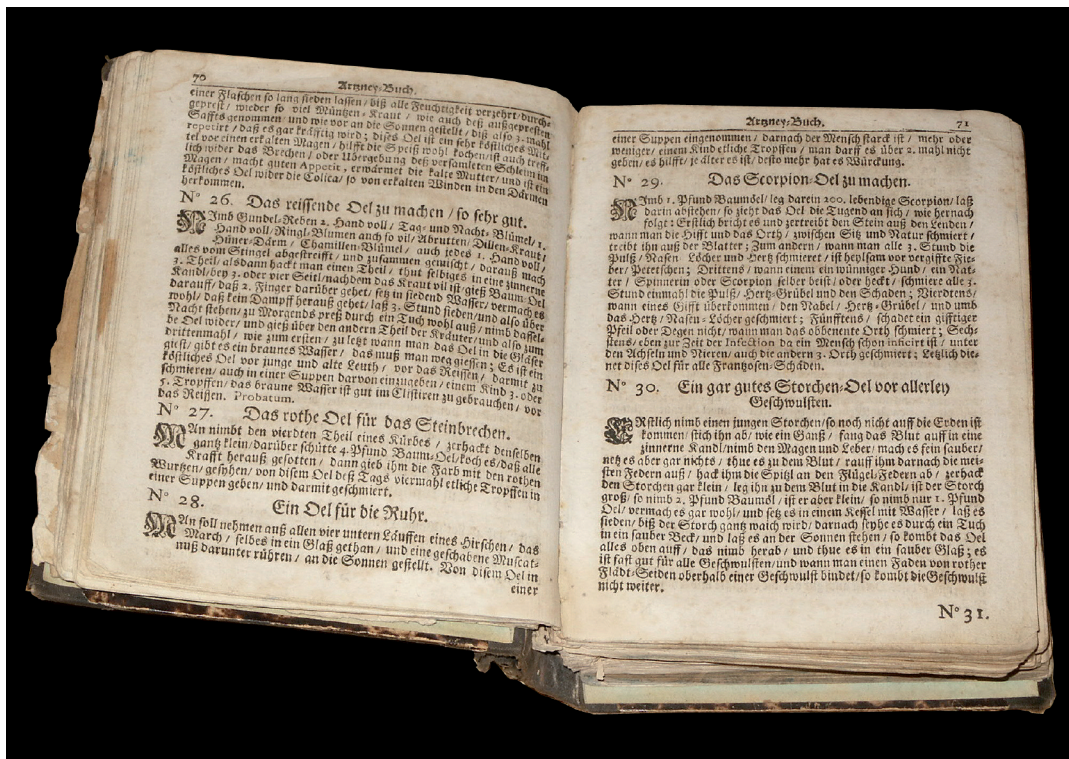 70
Artzney-Buch.
einer Flaschen so lang sieden lassen / biß alle Feuchtigkeit verzehrt / durch-
geprest / wieder so viel Müntzen-Kraut / wie auch deß außgepresten
Saffts genommen / und wie vor an die Sonnen gestellt / diß also 3. mahl
repetirt / daß es gar kräfftig wird; dises Oel ist ein sehr köstliches Mit-
tel vor einen erkalten Magen / hilfft die Speiß wohl kochen / ist auch treff-
lich wider das Brechen / oder Ubergebung deß versamleten Schleim im
Magen / macht guten Appetit, erwärmet die kalte Mutter / und ist ein
köstliches Oel wider die Colica / so von erkalten Winden in den Därmen
herkommen.
N° 26. Das reissende Oel zu machen / so sehr gut.
NImb Gundel-Reben 2. Hand voll / Tag- und Nacht-Blümel / 1.
Hand voll / Ringl-Blumen auch so vil / Abrutten / Dillen-Kraut /
Hüner-Därm / Chamillen-Blümel / auch jedes 1. Hand voll /
alles vom Stingel abgestreifft / und zusammen gemischt / darauß mach
3. Theil / alsdann hackt man einen Theil / thut selbiges in eine zinnerne
Kandl / bey 3. oder vier Seitl / nachdem das Kraut vil ist / gieß Baum-Oel
darauff / daß 2. Finger darüber gehet / setz in siedend Wasser / vermach es
wohl / daß kein Dampff herauß gehet / laß 3. Stund sieden / und also über
Nacht stehen / zu Morgends preß durch ein Tuch wohl auß / nimb dassel-
be Oel wider / und gieß über den andern Theil der Kräuter / und also zum
drittenmahl / wie zum ersten / zu letzt wann man das Oel in die Gläser
giest / gibt es ein braunes Wasser / das muß man weg giessen; Es ist ein
köstliches Oel vor junge und alte Leuth / vor das Reissen / darmit zu
schmieren / auch in einer Suppen darvon einzugeben / einem Kind 3. oder
5. Tropffen / das braune Wasser ist gut im Clistiren zu gebrauchen / vor
das Reissen. Probatum.
N° 27. Das rothe Oel für das Steinbrechen.
MAn nimbt den vierdten Theil eines Kürbes / zerhackt denselben
gantz klein / darüber schütte 4. Pfund Baum-Oel / koch es / daß alle
Krafft herauß gesotten / dann gieb ihm die Farb mit den rothen
Wurtzen / gesyhen / von disem Oel deß Tags viermahl etliche Tropffen in
einer Suppen geben / und darmit geschmiert.
N° 28. Ein Oel für die Ruhr.
MAn soll nehmen auß allen vier untern Läuffen eines Hirschen / das
March / selbes in ein Glaß gethan / und eine geschabene Muscat-
nuß darunter rühren / an die Sonnen gestellt. Von disem Oel in
einer
Artzney-Buch. 71
einer Suppen eingenommen / darnach der Mensch starck ist / mehr oder
weniger / einem Kind etliche Tropffen / man darff es über 2. mahl nicht
geben / es hilfft / je älter es ist / desto mehr hat es Würckung.
N° 29. Das Scorpion-Oel zu machen.
NImb 1. Pfund Baumöel / leg darein 200. lebendige Scorpion / laß
darin abstehen / so zieht das Oel die Tugend an sich / wie hernach
folgt: Erstlich bricht es und zertreibt den Stein auß den Lenden /
wann man die Hifft und das Orth / zwischen Sitz und Natur schmiert /
treibt ihn auß der Blatter; Zum andern / wann man alle 3. Stund die
Pulß / Nasen Löcher und Hertz schmieret / ist heylsam vor vergiffte Fie-
ber / Petetschen; Drittens / wann einem ein wünniger Hund / ein Nat-
ter / Spinnerin oder Scorpion selber beist / oder heckt / schmiere alle 3.
Stund einmahl die Pulß / Hertz-Grübel und den Schaden; Vierdtens /
wann eines Gifft überkommen / den Nabel / Hertz-Grübel / und umb
das Hertz / Nasen-Löcher geschmiert; Fünfftens / schadet ein gifftiger
Pfeil oder Degen nicht / wann man das obbenente Orth schmiert; Sech-
stens / eben zur Zeit der Infection da ein Mensch schon inficirt ist / unter
den Achseln und Nieren / auch die andern 3. Orth geschmiert; Letzlich die-
net dises Oel für alle Frantzosen-Schäden.
N° 30. Ein gar gutes Storchen-Oel vor allerley
Geschwulsten.
ERstlich nimb einen jungen Storchen / so noch nicht auff die Erden ist
kommen / stich ihn ab / wie ein Ganß / fang das Blut auff in eine
zinnerne Kandl / nimb den Magen und Leber / mach es fein sauber /
netz es aber gar nichts / thue es zu dem Blut / rauff ihm darnach die mei-
sten Federn auß / hack ihm die Spitzl an den Flügel-Federn ab / zerhack
den Storchen gar klein / leg ihn zu dem Blut in die Kandl / ist der Storch
groß / so nimb 2. Pfund Baumöl / ist er aber klein / so nimb nur 1. Pfund
Oel / vermach es gar wohl / und setz es in einem Kessel mit Wasser / laß es
sieden / biß der Storch gantz waich wird / darnach seyhe es durch ein Tuch
in ein sauber Beck / und laß es an der Sonnen stehen / so kombt das Oel
alles oben auff / das nimb herab / und thue es in ein sauber Glaß; es
ist fast gut für alle Geschwulsten / und wann man einen Faden von rother
Flädt-Seiden oberhalb einer Geschwulst bindet / so kombt die Geschwulst
nicht weiter.
N° 31.